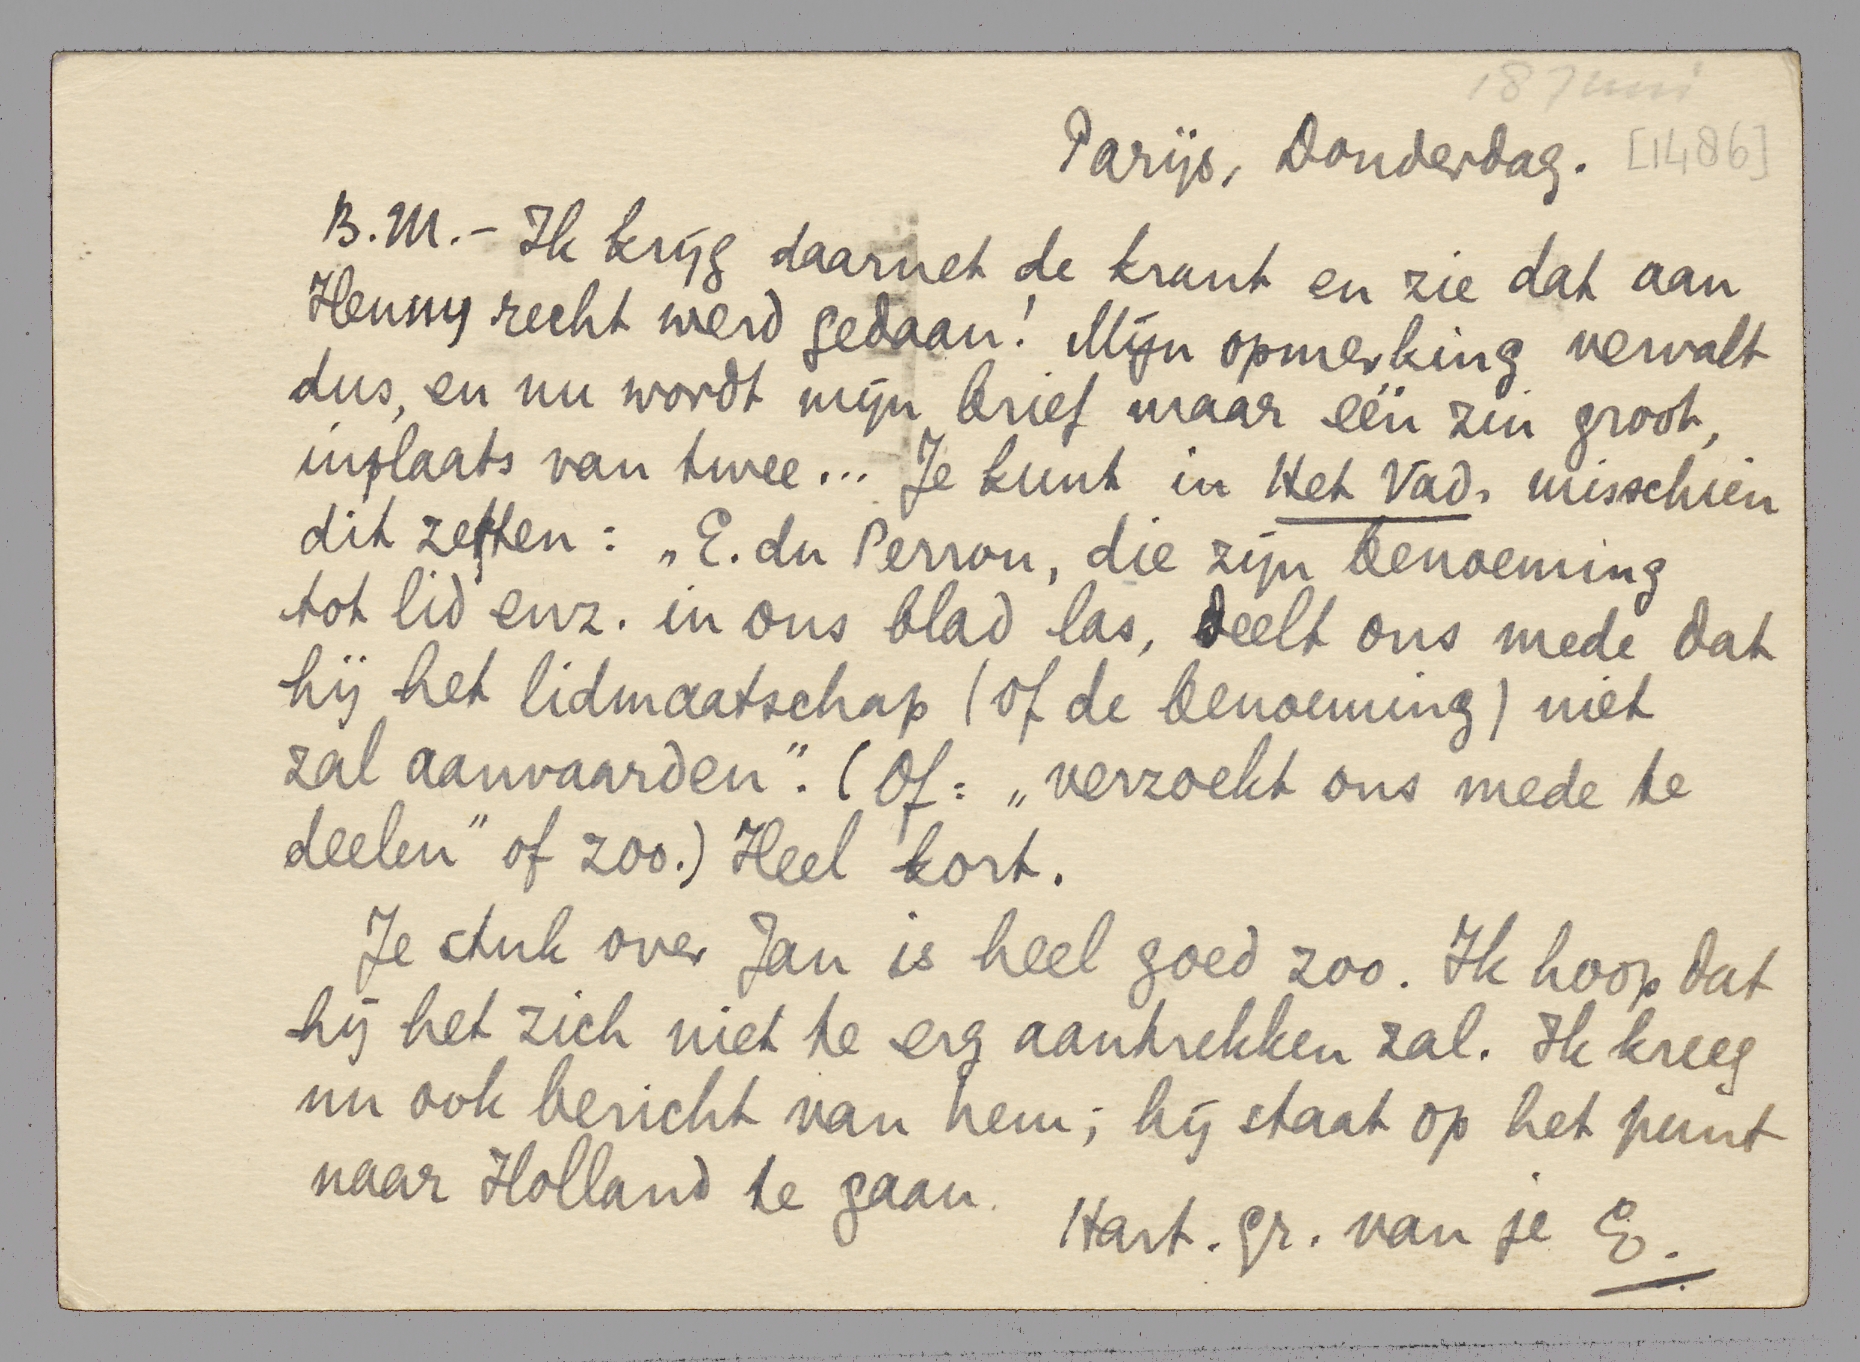 18 Juni
Parijs, Donderdag. [1486]
B.M.- Ik krijg daarnet de krant en zie dat aan
Henny recht werd gedaan! Mijn opmerking vervalt
dus, en nu wordt mijn brief maar één zin groot,
inplaats van twee... Je kunt in Het Vad. misschien
dit zetten: „E. du Perron, die zijn benoeming
tot lid enz. in ons blad las, deelt ons mede dat
hij het lidmaatschap (of de benoeming) niet
zal aanvaarden”. (Of: „verzoekt ons mede te
deelen” of zoo.) Heel kort.
Je stuk over Jan is heel goed zoo. Ik hoop dat
hij het zich niet te erg aantrekken zal. Ik kreeg
nu ook bericht van hem; hij staat op het punt
naar Holland te gaan.
Hart. gr. van je E.